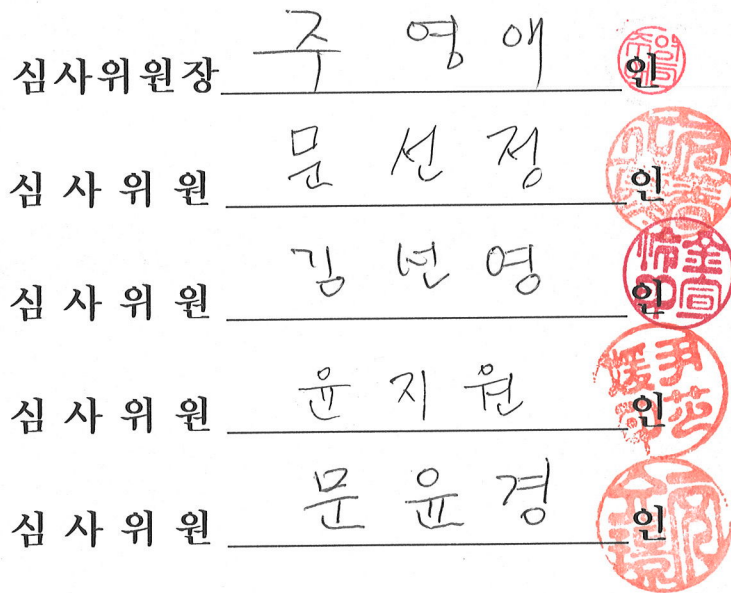 심사위원장 주 영 애 인
심 사 위 원 문 선 정 인
심 사 위 원 김 선 영 인
심 사 위 원 윤 지 원 인
심 사 위 원 문 윤 경 인